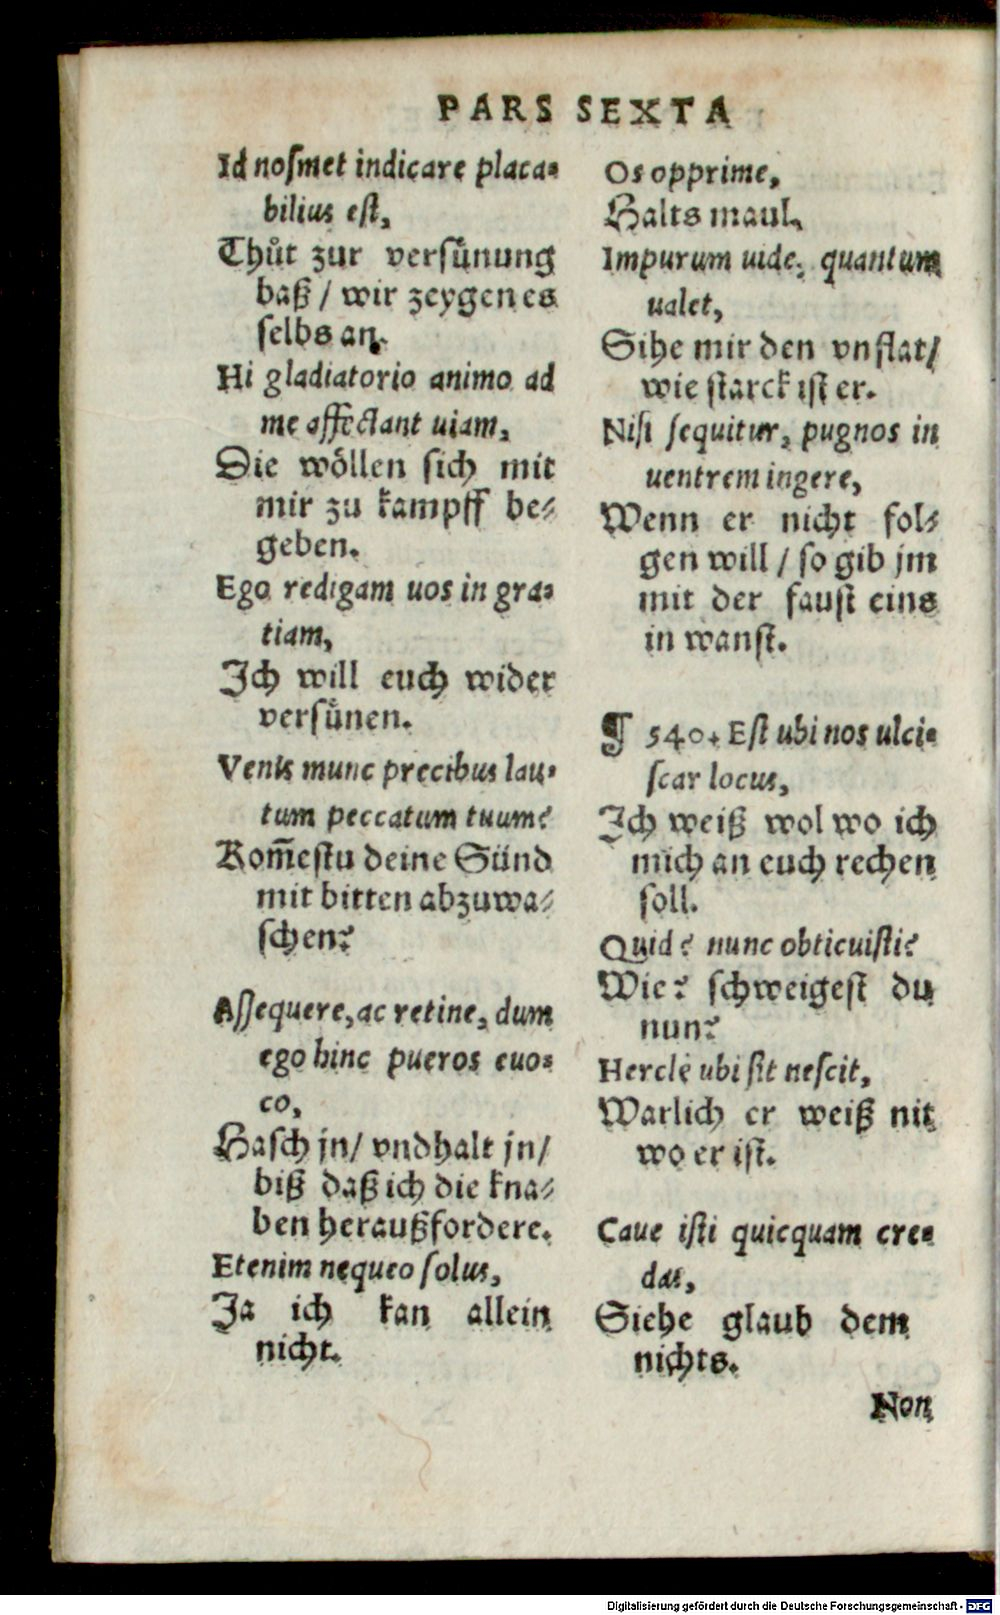 PARS SEXTA
Id noſmet indicare placa-
bilius eſt,
Thuͦt zur verſuͤnung
baß / wir zeygen es
ſelbs an.
Hi gladiatorio animo ad
me affectant uiam,
Die woͤllen ſich mit
mir zu kampff be-
geben.
Ego redigam uos in gra-
tiam,
Ich will euch wider
verſuͤnen.
Venis nunc precibus lau-
tum peccatum tuum?
Kom̃eſtu deine Sünd
mit bitten abzuwa-
ſchen?
Aſſequere, ac retine, dum
ego hinc pueros euo-
co,
Haſch jn/ vnd halt jn/
biß daß ich die kna-
ben heraußfordere.
Etenim nequeo ſolus,
Ja ich kan allein
nicht.
Os opprime,
Halts maul.
Impurum uide, quantum
ualet,
Sihe mir den vnflat/
wie ſtarck iſt er.
Niſi ſequitur, pugnos in
uentrem ingere,
Wenn er nicht fol-
gen will / ſo gib jm
mit der fauſt eins
in wanſt.
¶ 540. Eſt ubi nos ulci-
ſcar locus,
Ich weiß wol wo ich
mich an euch rechen
ſoll.
Quid? nunc obticuiſti?
Wie? ſchweigeſt du
nun?
Hercle ubi ſit neſcit,
Warlich er weiß nit
wo er iſt.
Caue iſti quicquam cre-
das,
Siehe glaub dem
nichts.
Non
Digitalisierung gefördert durch die Deutsche Forschungsgemeinschaft - DFG